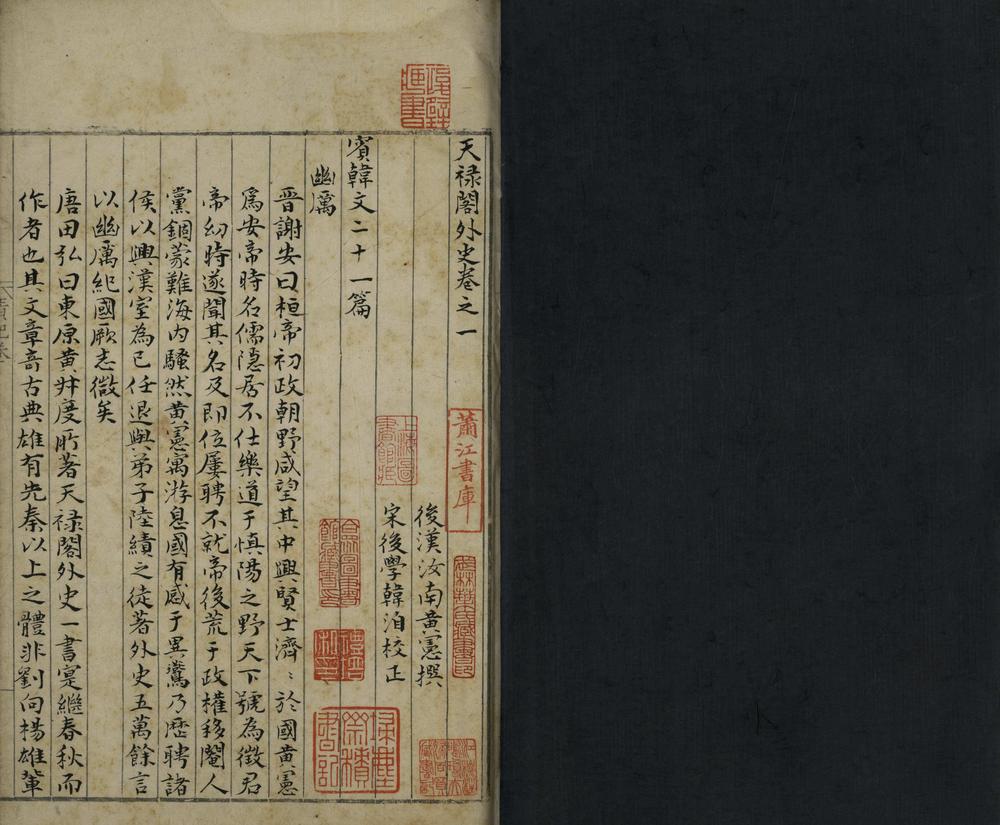 天禄閣外史卷之一
後漢汝南黃憲撰
宋後學韓洎校正
賓韓文二十一篇
幽厲
晉謝安曰桓帝初政朝野咸望其中興賢士濟〻於國黃憲
爲安帝時名儒隱居不仕樂道于慎陽之野天下號為徵君
帝幼時遂聞其名及即位屢聘不就帝後荒于政權移閹人
黨錮蒙難海內騷然黃憲寓游息國有感于異鸑乃歷聘諸
侯以興漢室為己任退與弟子陸績之徒著外史五萬餘言
以幽厲紀國厥志微矣
唐田弘曰東原黃叔度所著天禄閣外史一書寔繼春秋而
作者也其文章奇古典雄有先秦以上之體非劉向楊雄輩
蕭江書庫
上海圖書館藏